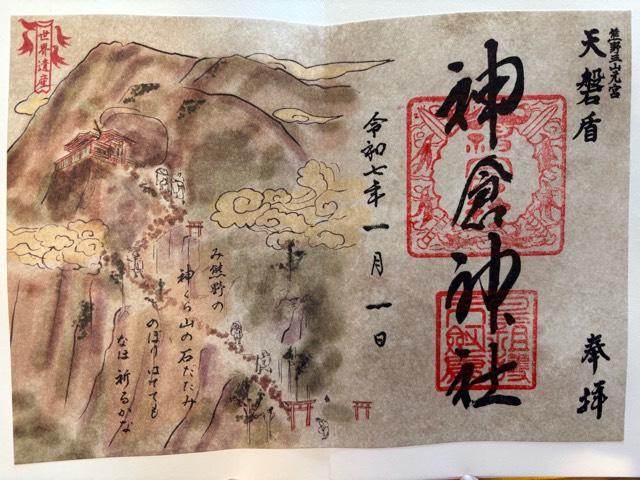 熊野三山元宮
天磐盾
奉拝
神倉神社
令和七年一月一日
世界遺産
み熊野の
神くら山の石だたみ
のぼりはてても
なほ祈るかな